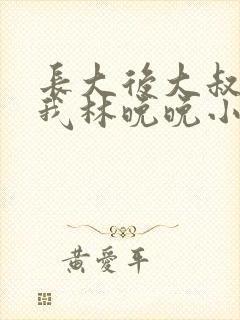 長大後大叔
我林晚晚小
黄愛平